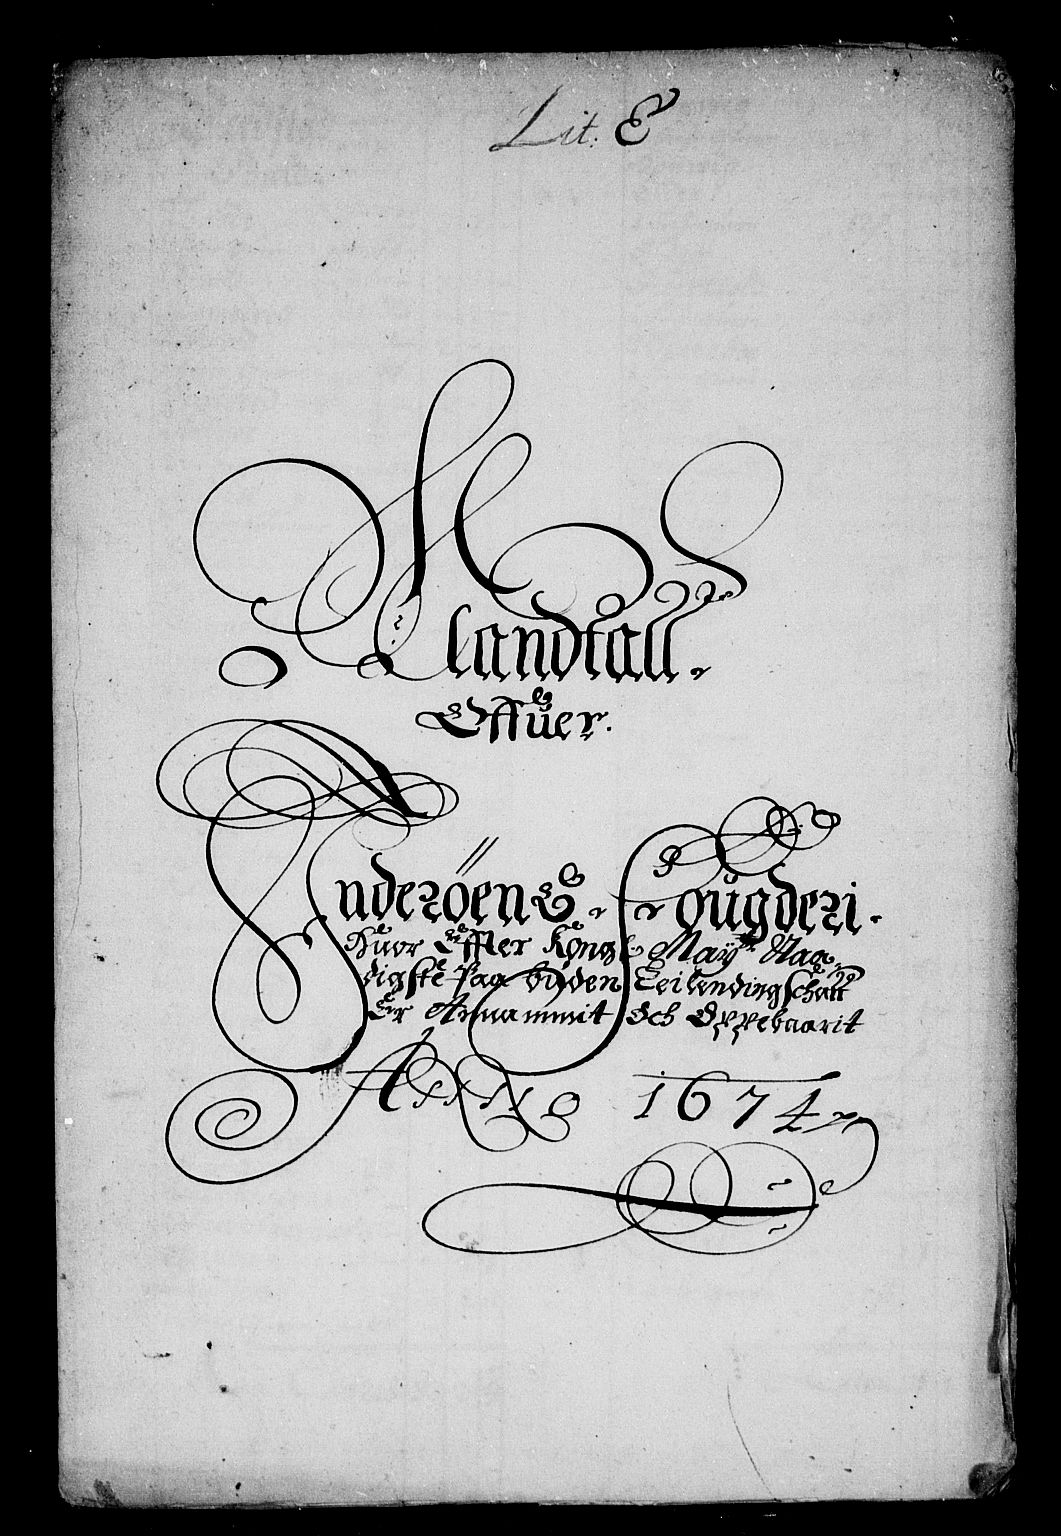 Lit: E
Mandtall
Offuer.
Inderöens Fougderi.
Huor Effter Kongl May^tz Naa-
digste Paa büden Leilendingschatt
Er Annammit och Oppebaarit
Anno 1674